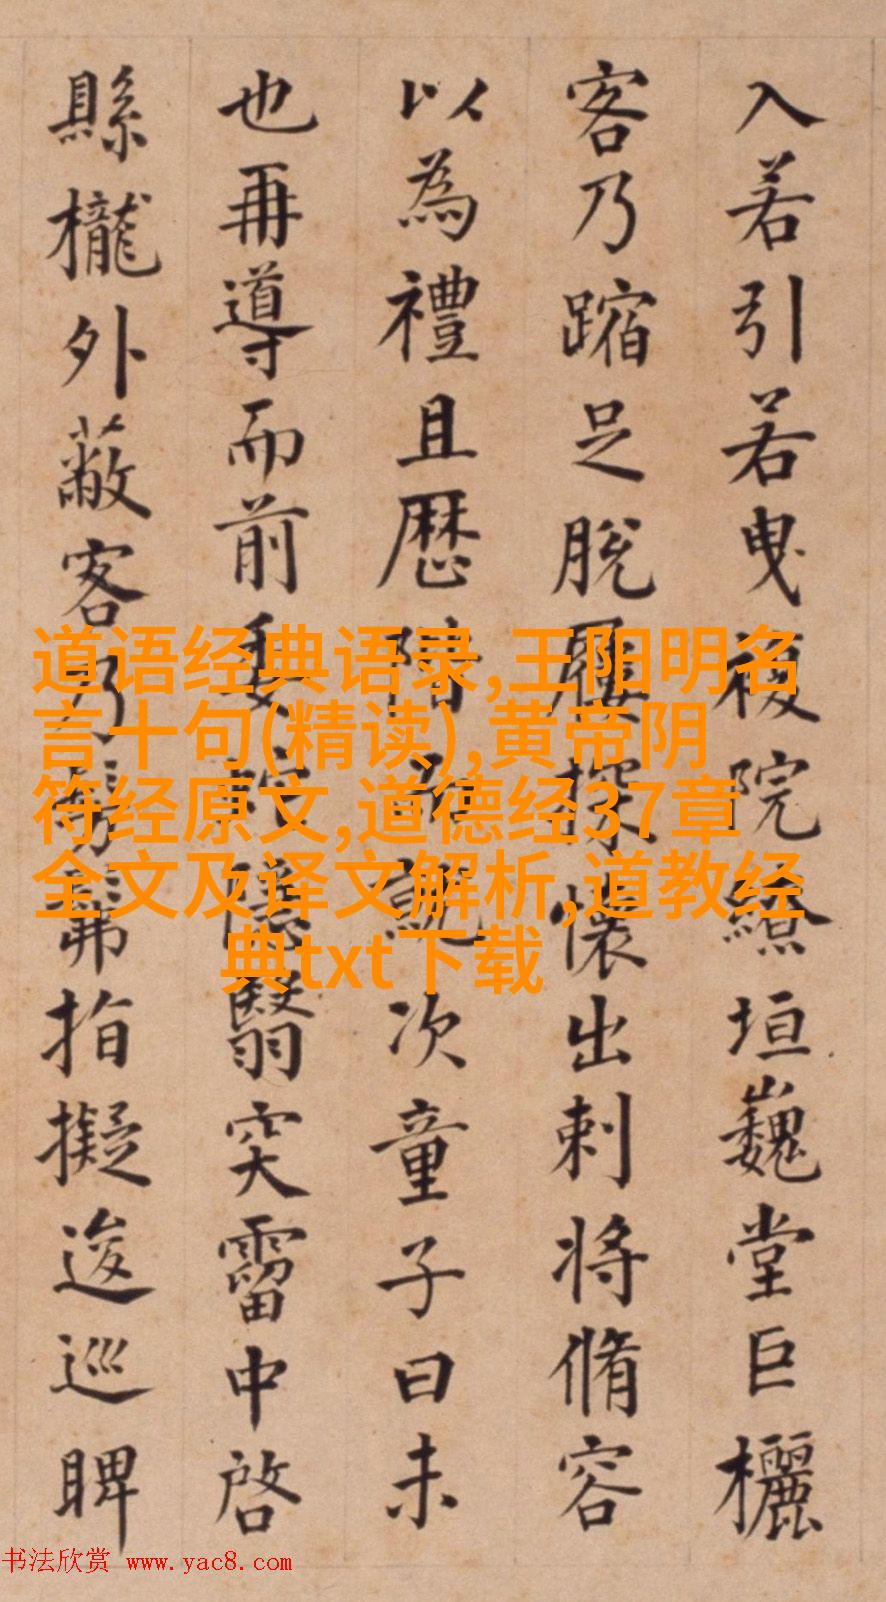 入若引若曳複院繚垣巍堂巨欐
客乃蹜足脫履探懷出刺將脩容
以為禮且歷階而就次童子曰未
也再導而前委蛇隱翳突霤中啓
縣櫳外蔽客乃髣髴指擬逡巡睥
道语经典语录,王阳明名
言十句(精读),黄帝阴
符经原文,道德经37章
全文及译文解析,道教经
典txt下载
书法欣赏 www.yac8.com